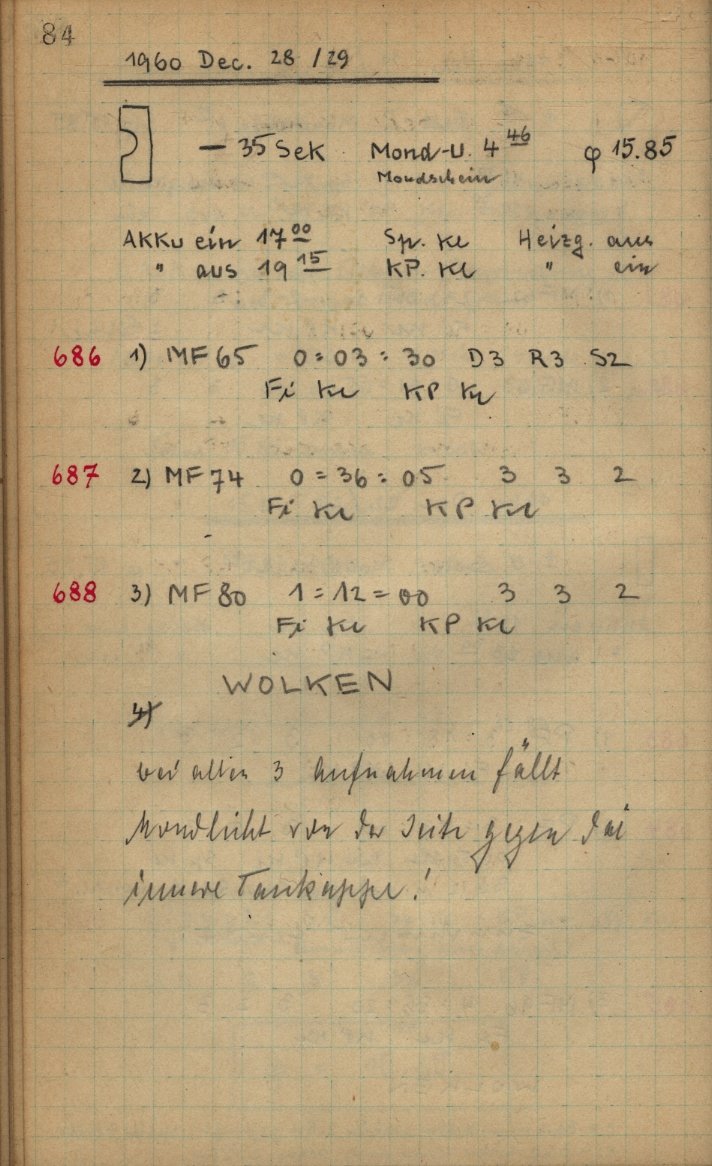 84
1960 Dec. 28 / 29
— 35 Sek Mond-U. 4 46 φ 15.85
Mondschein
Akku ein 17 00 Sp. Kl Heizg. aus
" aus 19 15 KP. Kl " ein
686 1) MF 65 0 = 03 = 30 D3 R3 S2
Fi Kl KP Kl
687 2) MF 74 0 = 36 = 05 3 3 2
Fi Kl KP Kl
688 3) MF 80 1 = 12 = 00 3 3 2
Fi Kl KP Kl
WOLKEN
4)
bei allen 3 Aufnahmen fällt
Mondlicht von der Seite gegen die
innere Taukappe!